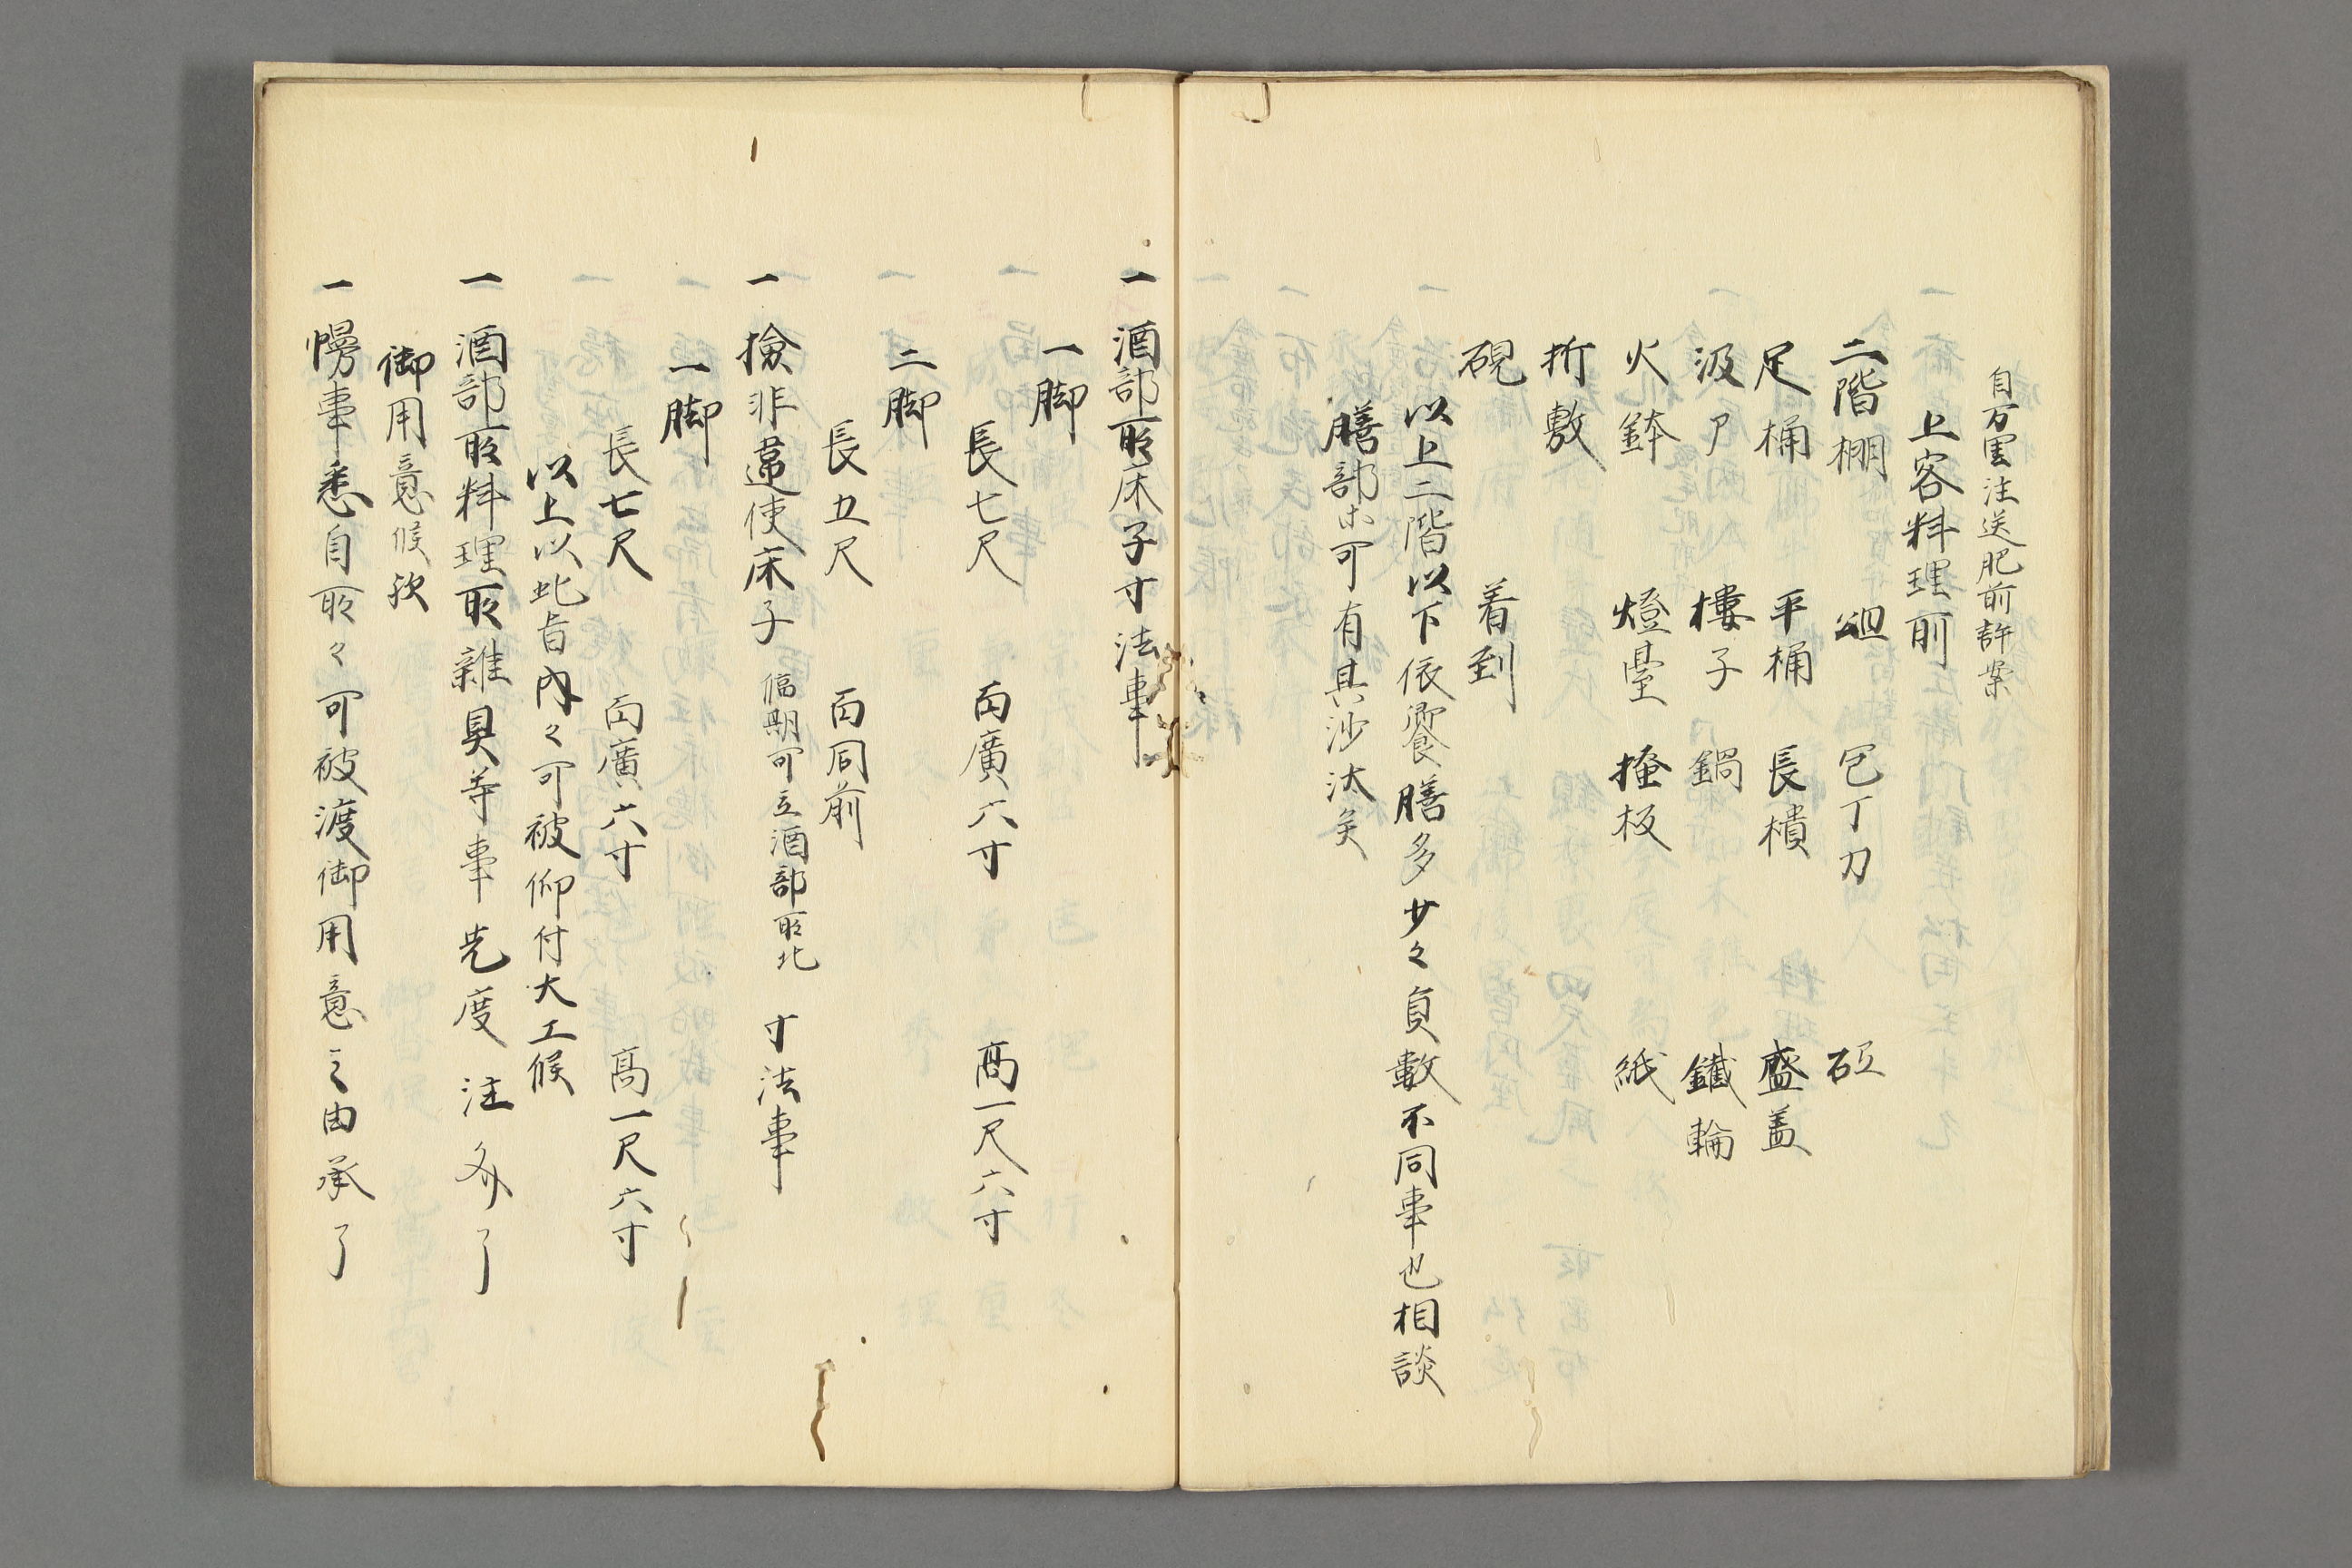 自万里注送肥前許案
上客料理所
二階棚 俎 包丁刀 砥
足桶 平桶 長櫃 盛盖
汲戸 樓子 鍋 鐵輪
火鉢 燈臺 掩板 紙
折敷
硯 着到
以上二階以下依饗膳多少々員數不同事也相談
膳部尓可有其沙汰矣
一 酒部所床子寸法事
一脚
長七尺 面廣六寸 高一尺六寸
二脚
長五尺 面同前
一 撿非違使床子 臨期可立酒部所北 寸法事
一脚
長七尺 面廣六寸 高一尺六寸
以上以此旨内々可被仰付大工候
一 酒部所料理所雜具等事先度注遣了
御用意候歟
一 幔事悉自所々可被渡御用意之由承了